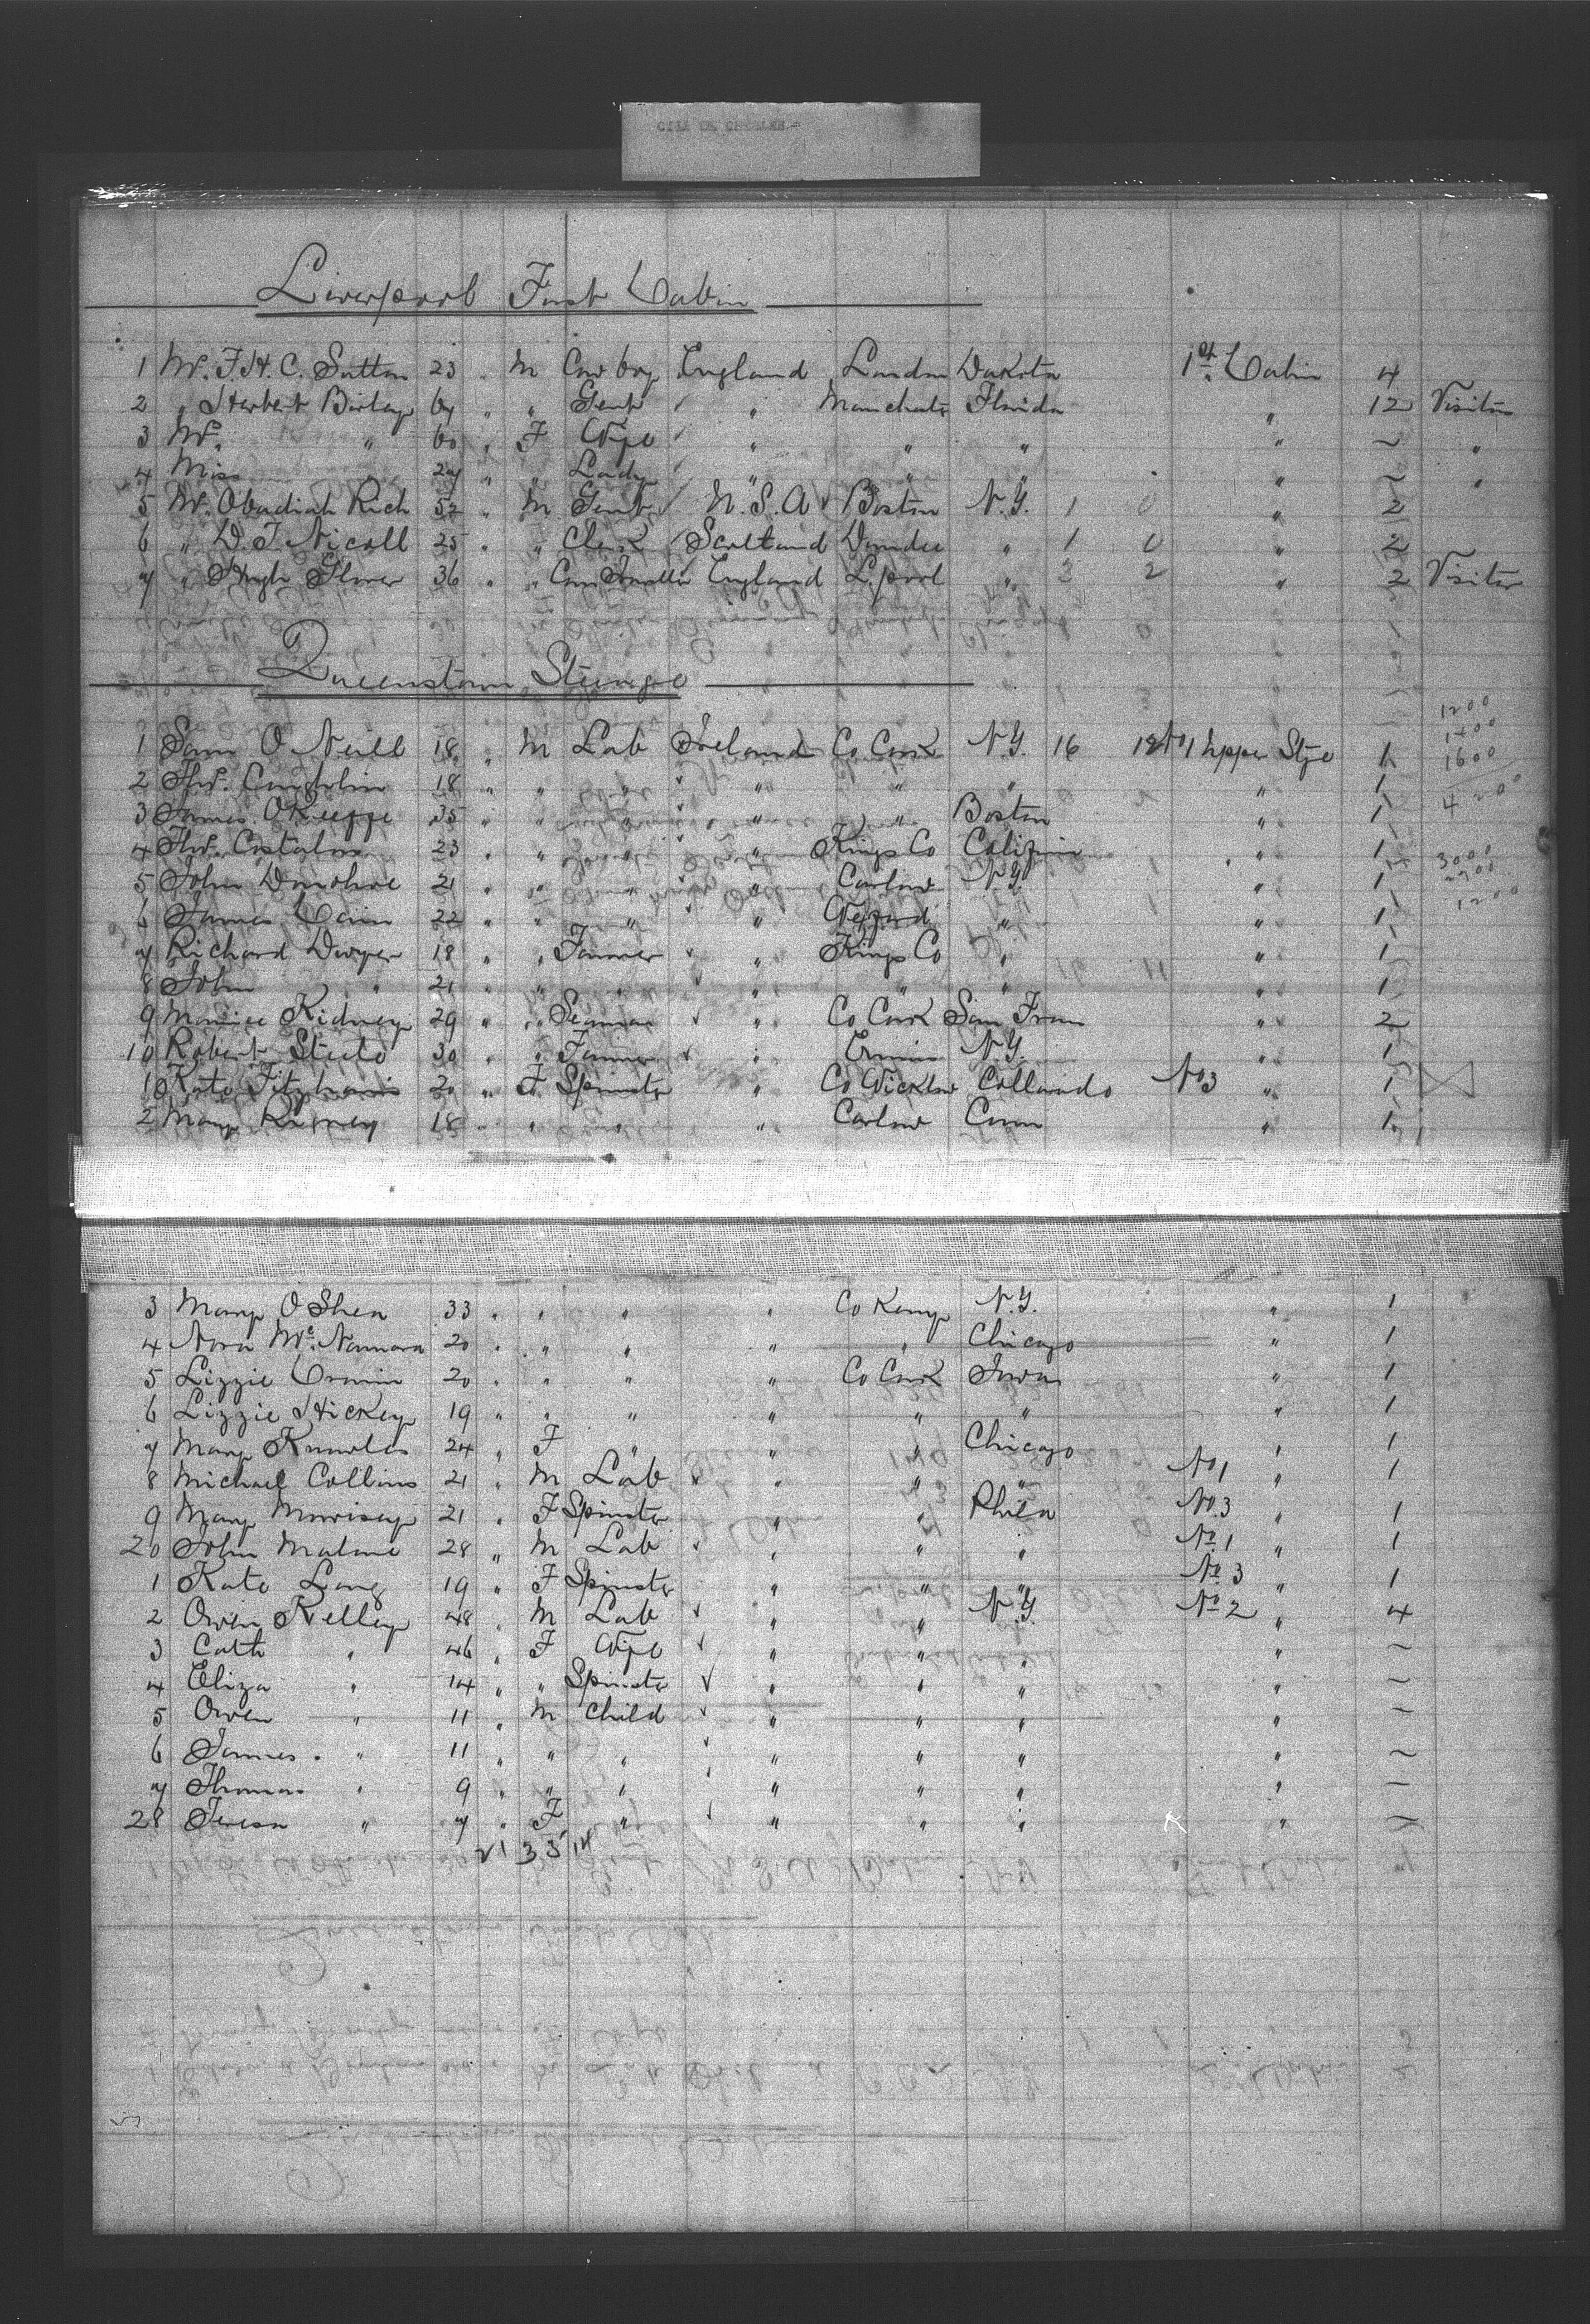 CITY OF CHESTER.-
Liverpool First Cabin
1 Mr. F. H. C. Sutton 23 " M Cow boy England London Dakota 1st Cabin 4
2 " Herbert Birley 67 " " Gent " Manchstr Florida " 12 Visitor
3 Mrs. " 60 " F Wife " " " " ~ "
4 Miss 27 " " Lady " " " " ~ "
5 Mr. Obadiah Rich 52 " M Gent U.S.A Boston N.Y. 1 0 " 2
6 " D. J. Nicoll 25 " " Clerk Scotland Dundee " 1 0 " 2
7 " Hugh Glover 36 " " England L.pool " 3 2 " 2 Visitor
Queenstown Steerage
1200
1400
1 Sam O Neill 18 " M Lab Ireland Co Cork N.Y. 16 12 No 1 upper Stge 1 1600
2 Thos. 18 " " " " " " " 1
3 James OKeeffe 35 " " " " " Boston " 1
4 Thos. Costalos 23 " " " " Kings Co " 1 3000
5 John Donohoe 21 " " " " Carlow N.Y. " 1
6 James 22 " " " " Wexford " " 1 1200
7 Richard Dwyer 18 " " Farmer " Kings Co " " 1
8 John " 21 " " " " " " " 1
9 Maurice Kidney 29 " " Seaman " Co Cork San Fran " 2
10 Robert Steele 30 " " Farmer " N.Y. " 1
1 Kate Fitzharris 20 " F Spinster " Co Wicklow Collorado No 3 " 1
2 Mary 18 " " " " Carlow Conn " 1
3 Mary O Shea 33 " " " " Co Kerry N.Y. " 1
4 Nora Mc. Namara 20 " " " " " Chicago " 1
5 Lizzie Cronin 20 " " " " Co Cork Iowa " 1
6 Lizzie Hickey 19 " " " " " " " 1
7 Mary Knowles 24 " F " " " Chicago " 1
8 Michael Collins 21 " M Lab " " " No 1 " 1
9 Mary Morrisey 21 " F Spinster " " Phila No. 3 " 1
20 John Malone 28 " M Lab " " " No. 1 " 1
1 Kate Long 19 " F Spinster " " " No. 3 " 1
2 Owen Kelley 48 " M Lab " " N.Y No. 2 " 4
3 Cath " 46 " F Wife " " " " ~
4 Eliza " 14 " " Spinster " " " " ~
5 Owen " 11 " M Child " " " " ~
6 James " 11 " " " " " " " ~
7 Thomas " 9 " " " " " " " ~
28 Teresa " 7 " F " " " " " ~
21 35 14